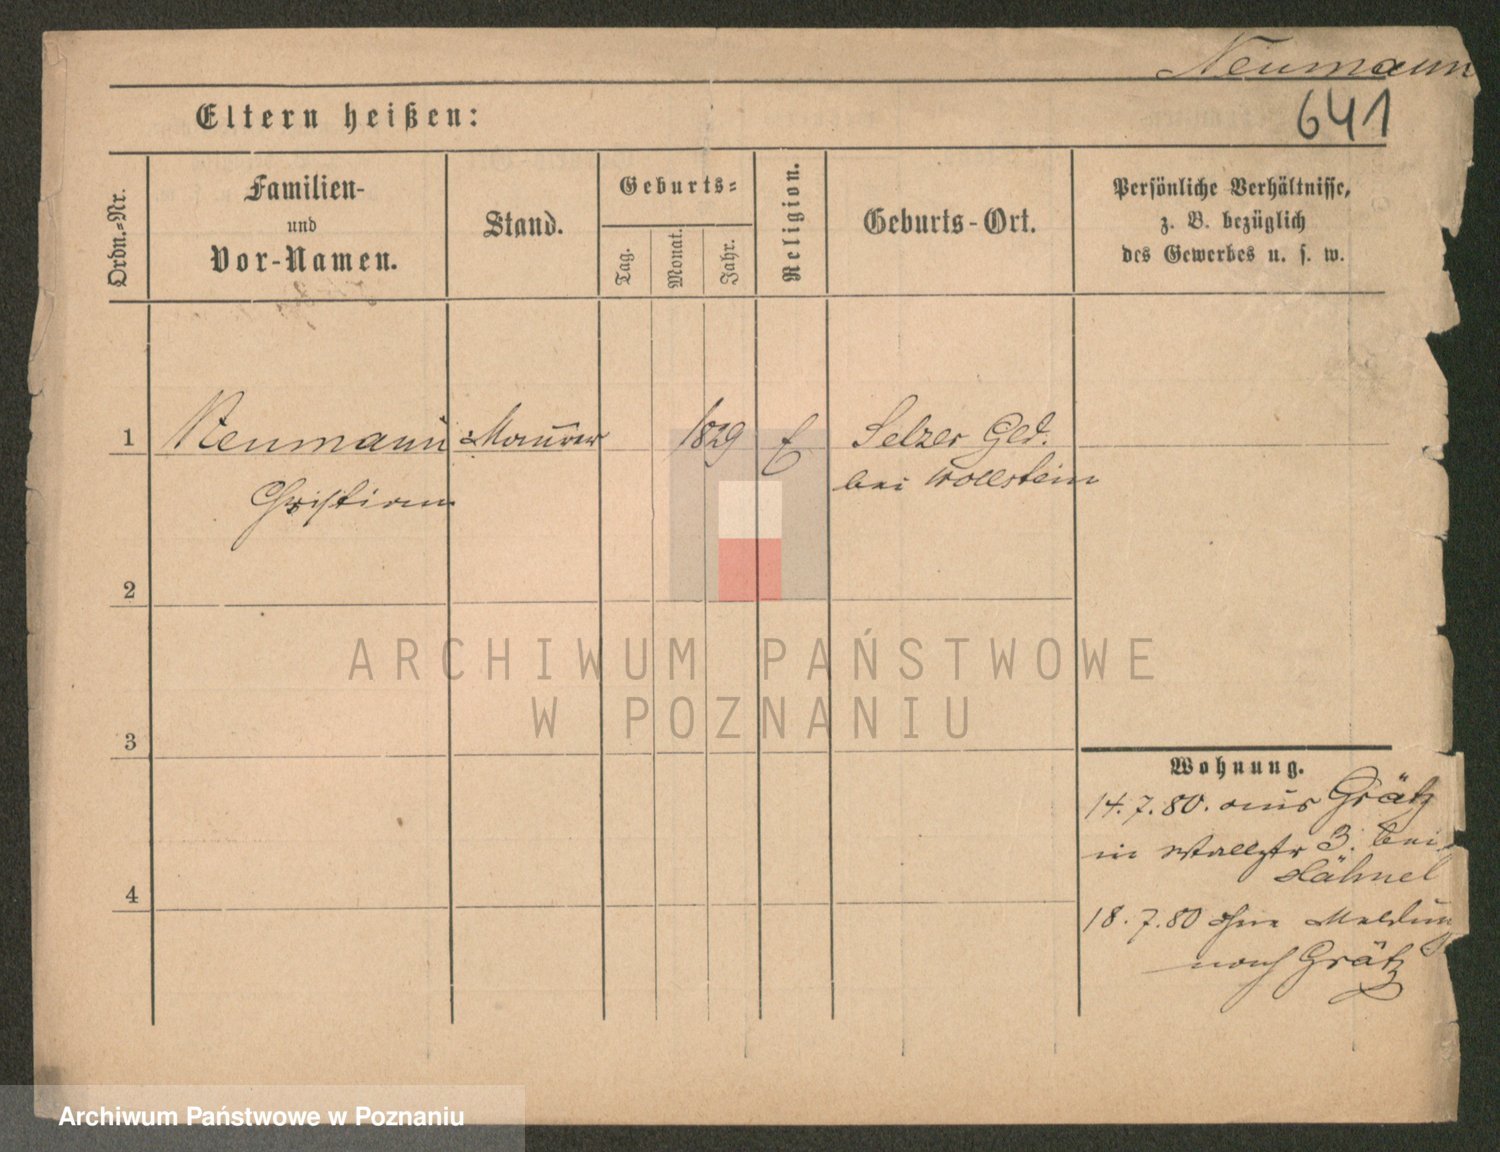 Neumann
641
Eltern heißen:
Ordn.-Nr.
Familien-
und
Vor-Namen.
Stand.
Geburts-
Tag.
Monat.
Jahr.
Religion.
Geburts-Ort.
Persönliche Verhältnisse,
z. B. bezüglich
des Gewerbes u. s. w.
1 Neumann Maurer 1829 E Selzer
Christian bei Wollstein
2
3
4
Wohnung.
14.7.80. aus Grätz
in Wallstr 3. bei
Hähnel
18.7.80 ohne Meldung
nach Grätz
ARCHIWUM PAŃSTWOWE
W POZNANIU
Archiwum Państwowe w Poznaniu